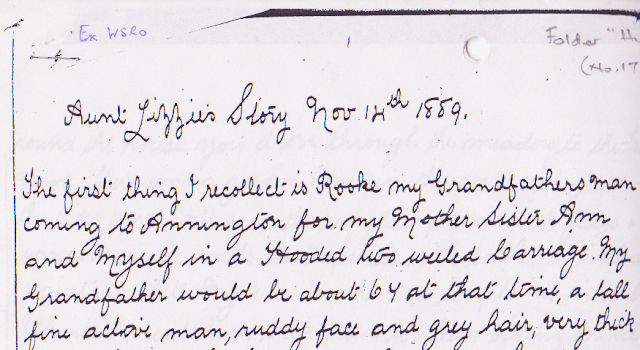 Ex WSRO
Folder "Hu
(No. 17
Aunt Lizzie's Story Nov. 14th 1889.
The first thing I recollect is Rooke my Grandfathers man
coming to Annington for my Mother Sister Ann
and Myself in a Hooded two weeled Carriage. My
Grandfather would be about 64 at that time, a tall
fine active man, ruddy face and grey hair, very thick